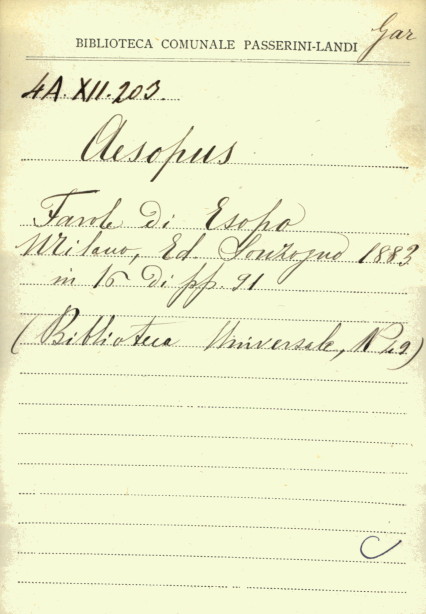 Gar
BIBLIOTECA COMUNALE PASSERINI-LANDI
4A. XII. 203.
Aesopus
Favole di Esopo
Milano, Ed Sonzogno 1883
in 16 di pp. 91
(Biblioteca Universale, N 49)